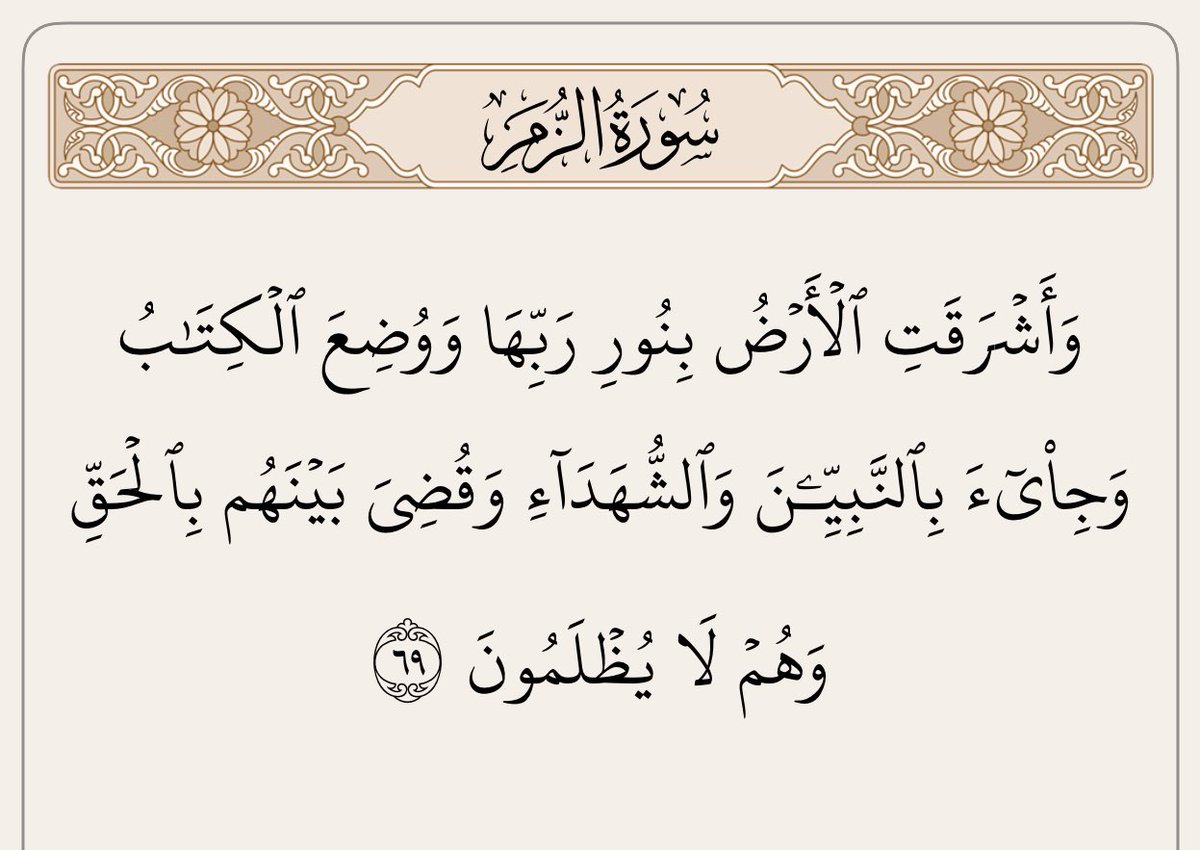 سُورَةُ الزُّمَرِ
وَأَشْرَقَتِ ٱلْأَرْضُ بِنُورِ رَبِّهَا وَوُضِعَ ٱلْكِتَـٰبُ
وَجِا۟ىٓءَ بِٱلنَّبِيِّـۧنَ وَٱلشُّهَدَآءِ وَقُضِىَ بَيْنَهُم بِٱلْحَقِّ
وَهُمْ لَا يُظْلَمُونَ ٦٩